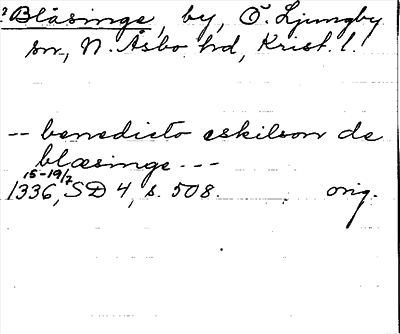 ? Blåsinge, by, Ö. Ljungby
sn., N. Åsbo hd, Krist. l.
-- benedicto eskilson de
blæsinge ---
15-19/7
1336, SD 4, s. 508. orig.